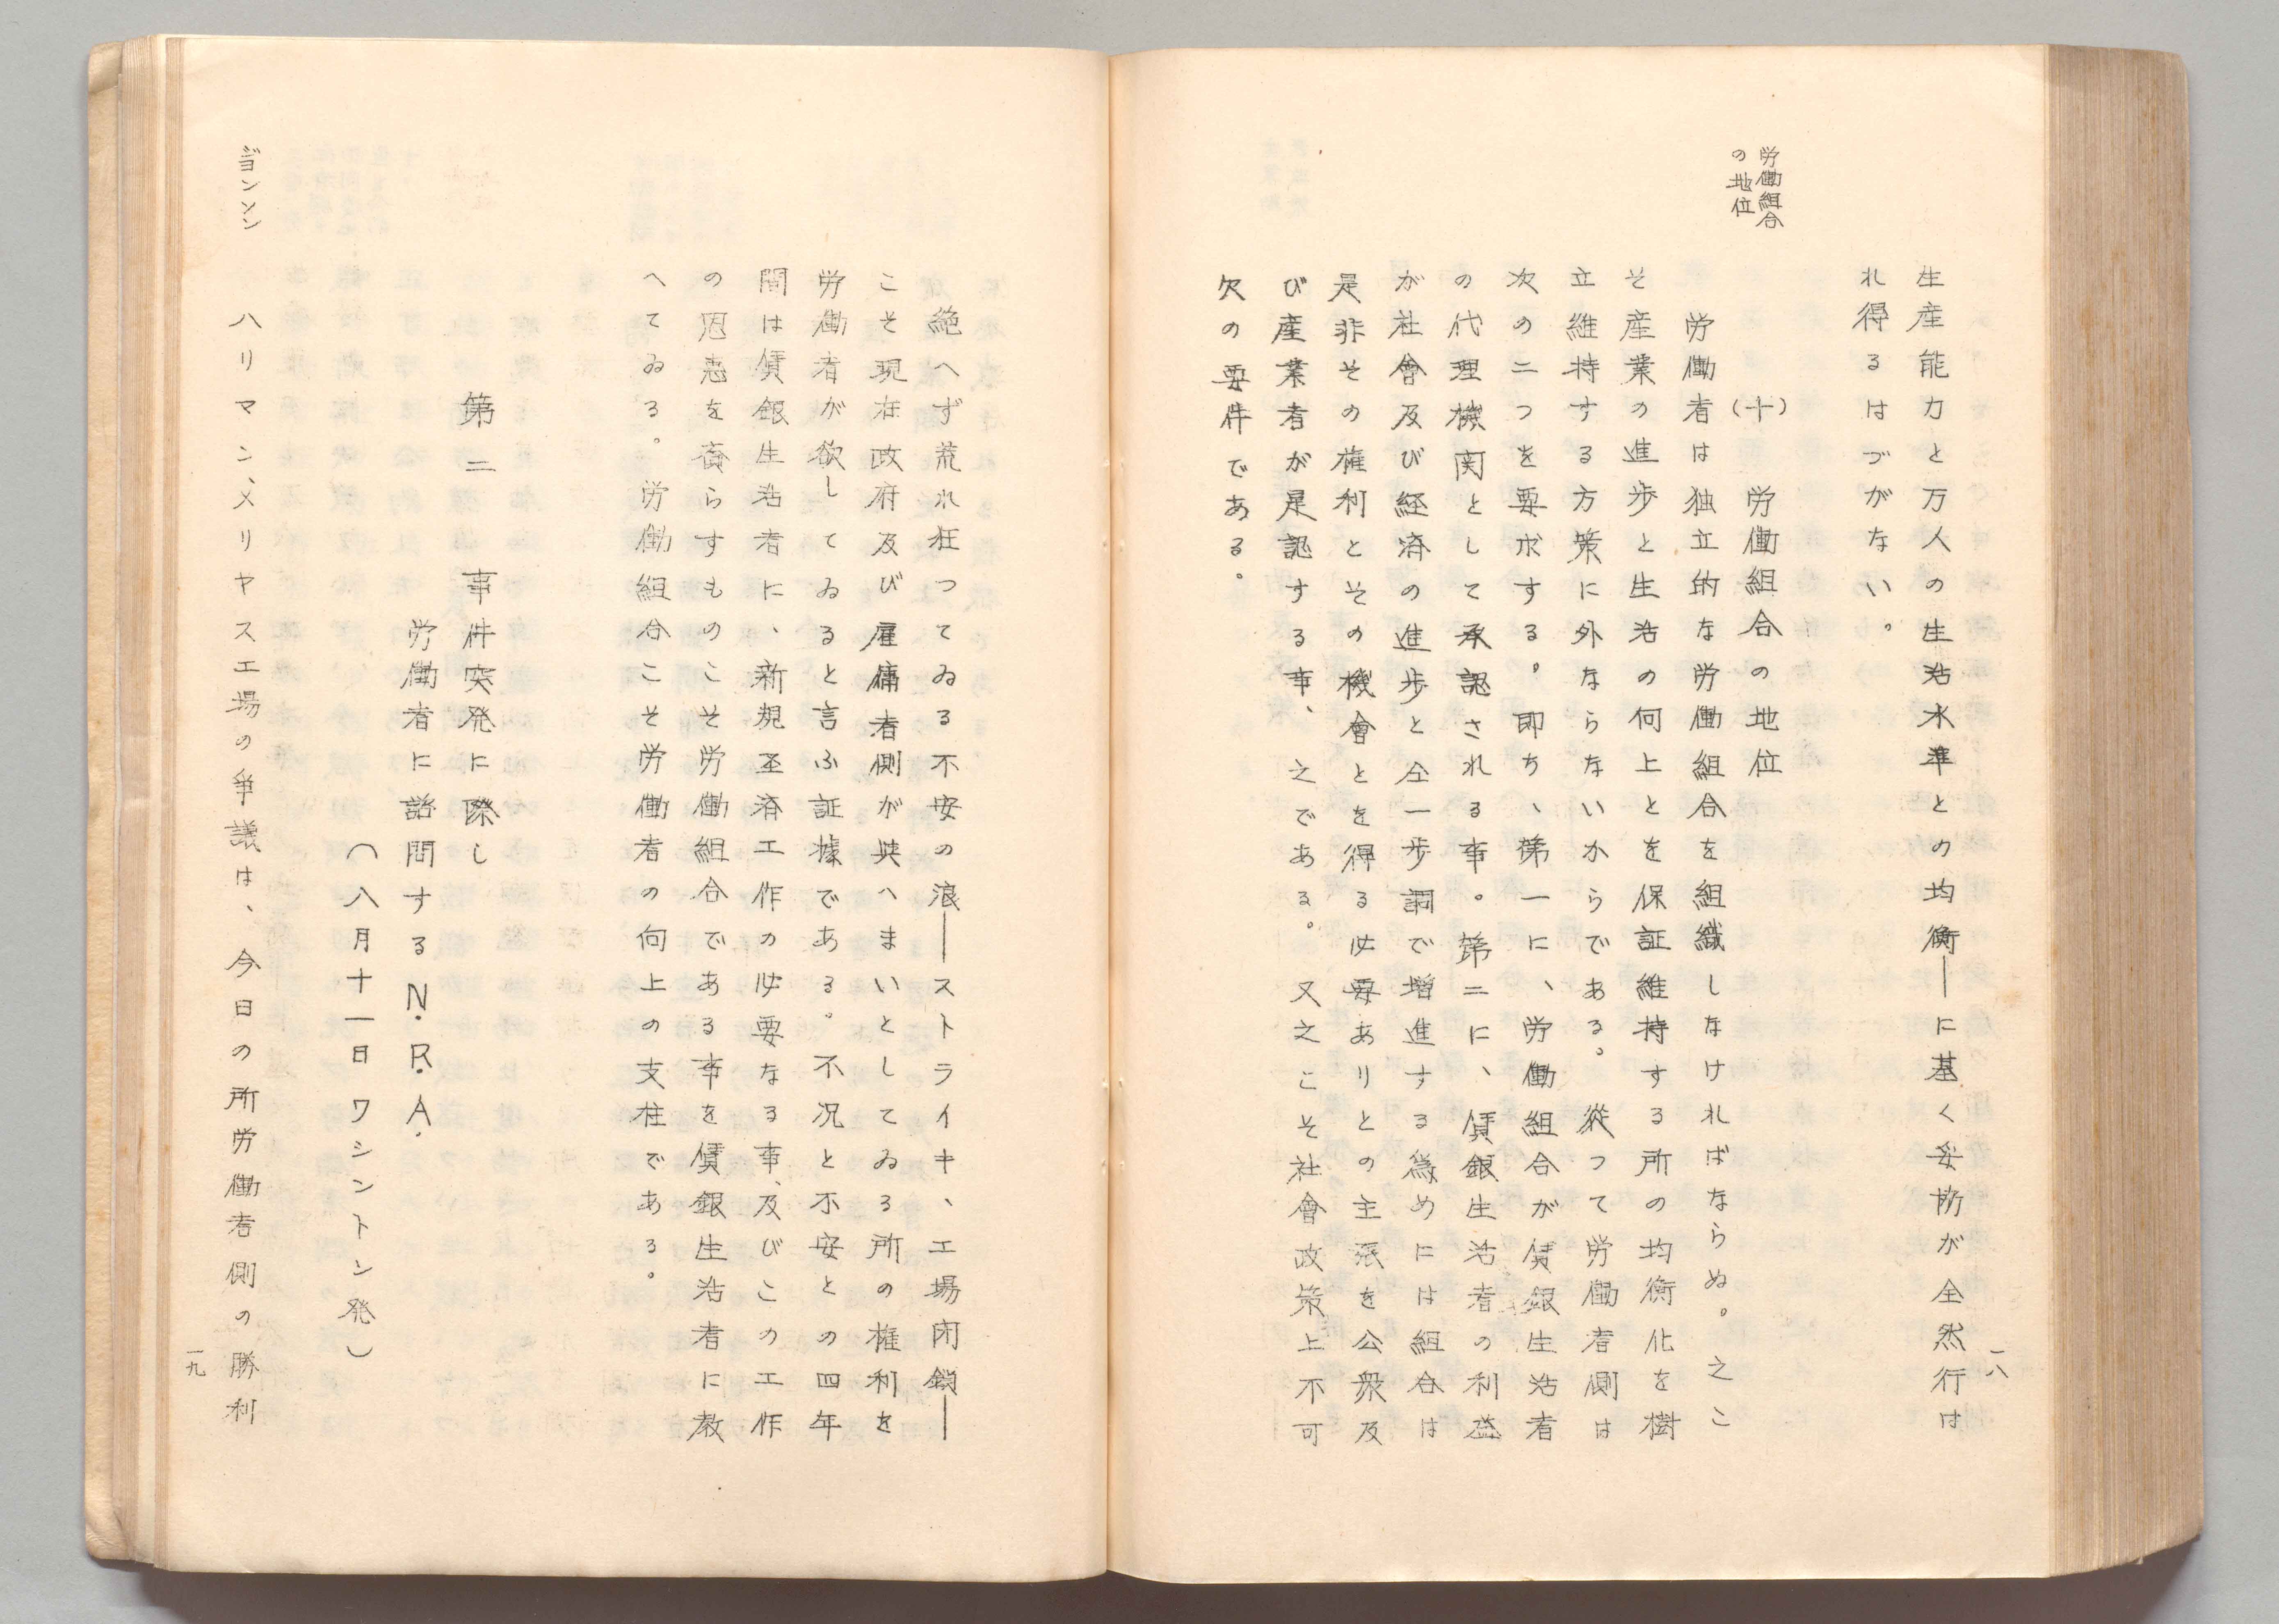 一八
生産能力と万人の生活水準との均衡――に基く妥協が全然行は
れ得るはづがない。
労働組合
の地位
(十)　労働組合の地位
労働者は独立的な労働組合を組織しなければならぬ。之こ
そ産業の進歩と生活の向上とを保証維持する所の均衡化を樹
立維持する方策に外ならないからである。従つて労働者側は
次の二つを要求する。即ち、第一に、労働組合が賃銀生活者
の代理機関として承認される事。第二に、賃銀生活者の利益
が社會及び経済の進歩と仝一歩調で増進する為めには組合は
是非その権利とその機會とを得る必要ありとの主張を公衆及
び産業者が是認する事、之である。又之こそ社會政策上不可
欠の要件である。
絶へず荒れ狂つてゐる不安の浪――ストライキ、工場閉鎖――
こそ現在政府及び雇傭者側が與へまいとしてゐる所の権利を
労働者が欲してゐると言ふ証據である。不況と不安との四年
間は賃銀生活者に、新規圣済工作の必要なる事、及びこの工作
の恩恵を齎らすものこそ労働組合である事を賃銀生活者に教
へてゐる。労働組合こそ労働者の向上の支柱である。
第二　事件突発に際し
労働者に諮問するN.R.A.
(八月十一日ワシントン発)
ジヨンソン
ハリマン、メリヤス工場の争議は、今日の所労働者側の勝利
一九